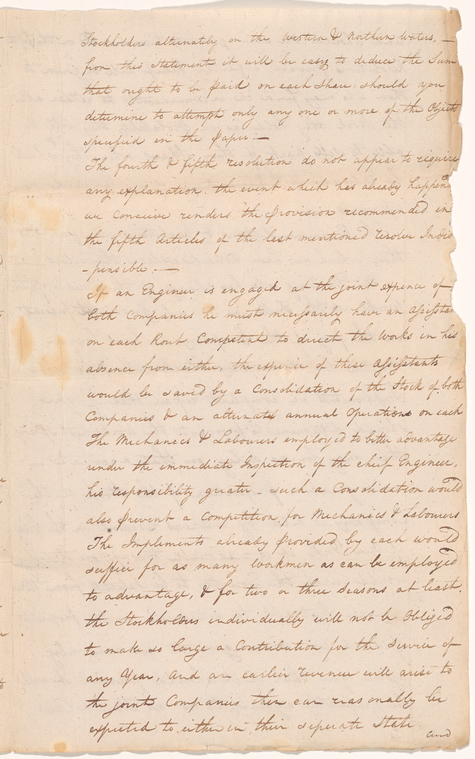 Stockholders alternately on the western & Northern waters. —
from this Statement it will be easy to deduce the Sum
that ought to be paid on each Share, should you
determine to attempt only any one or more of the Objects
specified in the paper. —
The fourth & fifth resolution do not appear to require
any explanation. the event which has already happened
we Conceive renders the provision recommended in
the fifth Articles of the last mentioned resolve Indis
-pensible. —
If an Engineer is engaged at the joint expence of
both Companies he must necessarily have an Assistant
on each Rout Competent to direct the works in his
absence from either, the expence of these Assistants
would be saved by a Consolidation of the Stock of both
Companies & an alternate annual Operations on each
The Mechanics & Labourers employed to better advantage
under the immediate Inspection of the chief Engineer,
his responsibility greater – such a Consolidation would
also prevent a Competition for Mechanics & Labourers
The Implements already provided by each would
suffice for as many workmen as can be employed
to advantage, & for two or three Seasons at least.
the Stockholders individually will not be Obliged
to make so large a Contribution for the Service of
any Year, and an earlier revenue will arise to
the joint Companies then can reasonably be
expected to either in their seperate State
and